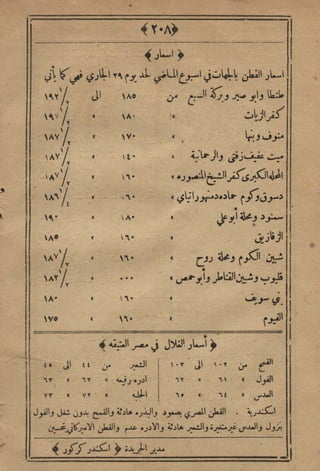 ﴿ ٢٠٨ ﴾
﴿ اسعار ﴾
اسعار القطن بالجهات في اسبوع الماضي لحد يوم ٢٩ الجاري فهي كما يأتي
طنطا وابو صير وبركة السبع من ١٨٥ الى ١٩٢ ١/٢
كفر الزيات » ١٨٠ » ١٩٠ ١/٢
منوف وبنها » ١٧٠ » ١٨٧ ١/٢
ميت عفيف زفتى والرحمانية » ١٤٠ » ١٨٧ ١/٢
المحله الكبرى كفر الشيخ المنصوره » ١٦٠ » ١٨٧ ١/٢
دسوق وكوم حماده دمنهور اتياي » ١٦٠ » ١٨٦ ١/٤
سمنود ومحلة أبو علي » ١٨٠ » ١٩٠
الزقازيق » ١٦٠ » ١٨٥
شبين الكوم ومحلة روح » ١٦٠ » ١٨٧ ١/٢
قليوب وشبين القناطر وأبو حمص » ٠٠٠ » ١٨٢ ١/٢
بني سويف » ١٦٠ » ١٨٠
الفيوم » ١٦٠ » ١٧٥
﴿ أسعار الغلال في مصر العتيقه ﴾
القمح من ١٠٢ الى ١٠٣ الشعير من ٤٤ الى ٤٥
الفول » ٦١ » ٦٢ ادره رفيعه » ٦٢ » ٦٣
العدس » ٦٤ » ٦٥ الحلبه » ٧٢ » ٧٣
اسكندرية . القطن المصري بصعود والبذره هادئة والقميح بدون شغل والفول
بنزول والعدس غير متغيرة والشعير هادئة والادره عدم والقطن الاميركاني بتحسين
مدير الجريدة ﴿ اسكندر كركور ﴾